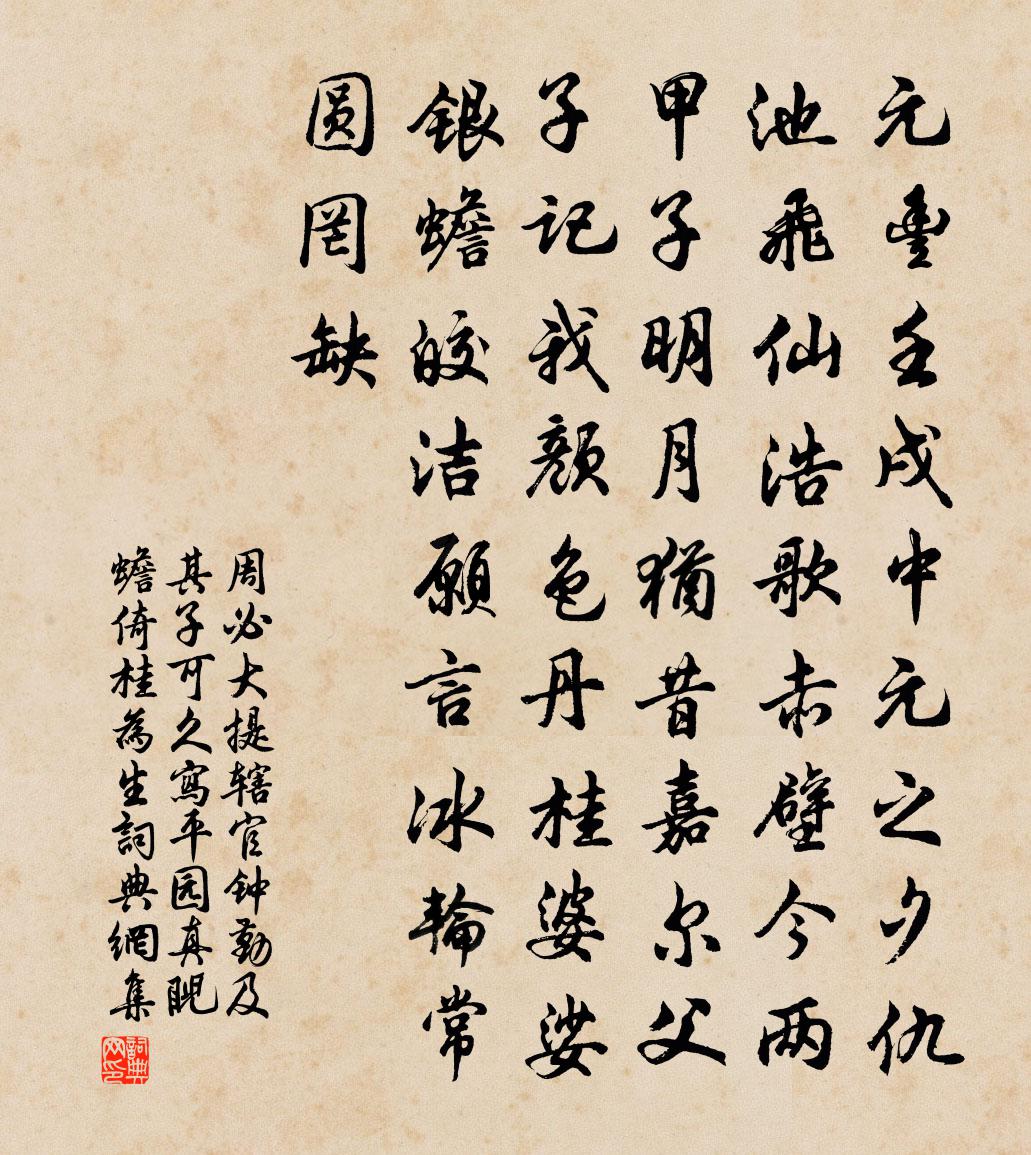 元豐壬戌中元之夕仇
池飛仙浩歌赤壁今两
甲子明月猶昔嘉尔父
子记我颜色丹桂婆娑
銀蟾皎洁願言冰輪常
圆罔缺
周必大提辖官钟勤及
其子可久寫平园真睨
蟾倚桂為生詞典網集
詞典网印